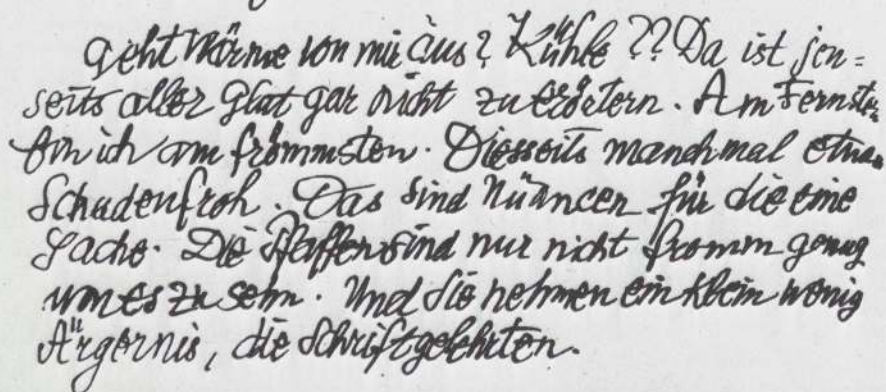 Geht Wärme von mir aus? Kühle?? Da ist jen=
seits aller Glut gar nicht zu erörtern. Am Fernsten
bin ich am frömmsten. Diesseits manchmal etwas
Schadenfroh. Das sind Nüancen für die eine
Sache. Die Pfaffen sind nur nicht fromm genug
um es zu sehn. Und sie nehmen ein klein wenig
Ärgernis, die Schriftgelehrten.